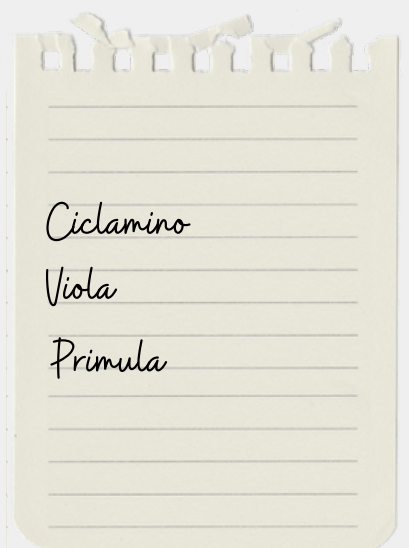 Ciclamino
Viola
Primula